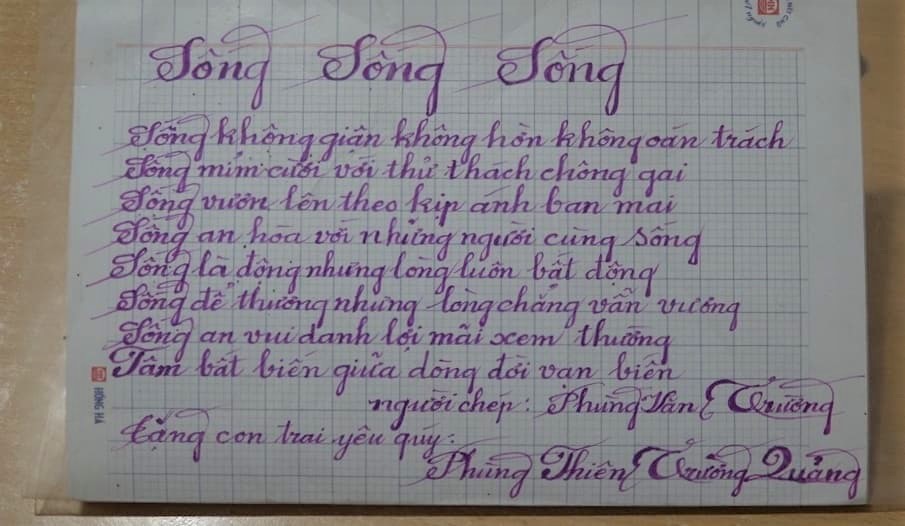 Sống Sống Sống
Sống không giận không hờn không oán trách
Sống mỉm cười với thử thách chông gai
Sống vươn lên theo kịp ánh ban mai
Sống an hòa với những người cùng sống
Sống là động nhưng lòng luôn bất động
Sống để thương nhưng lòng chẳng vấn vương
Sống an vui danh lợi mãi xem thường
Tâm bất biến giữa dòng đời vạn biến
HỒNG HÀ
người chép: Phùng Văn Trường
tặng con trai yêu quý:
Phùng Thiên Trường Quảng